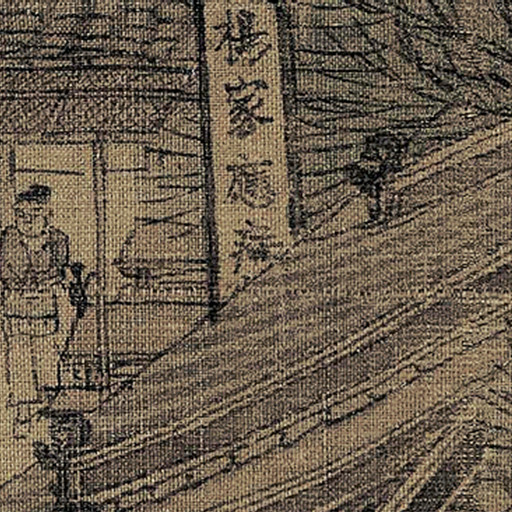 楊家應症